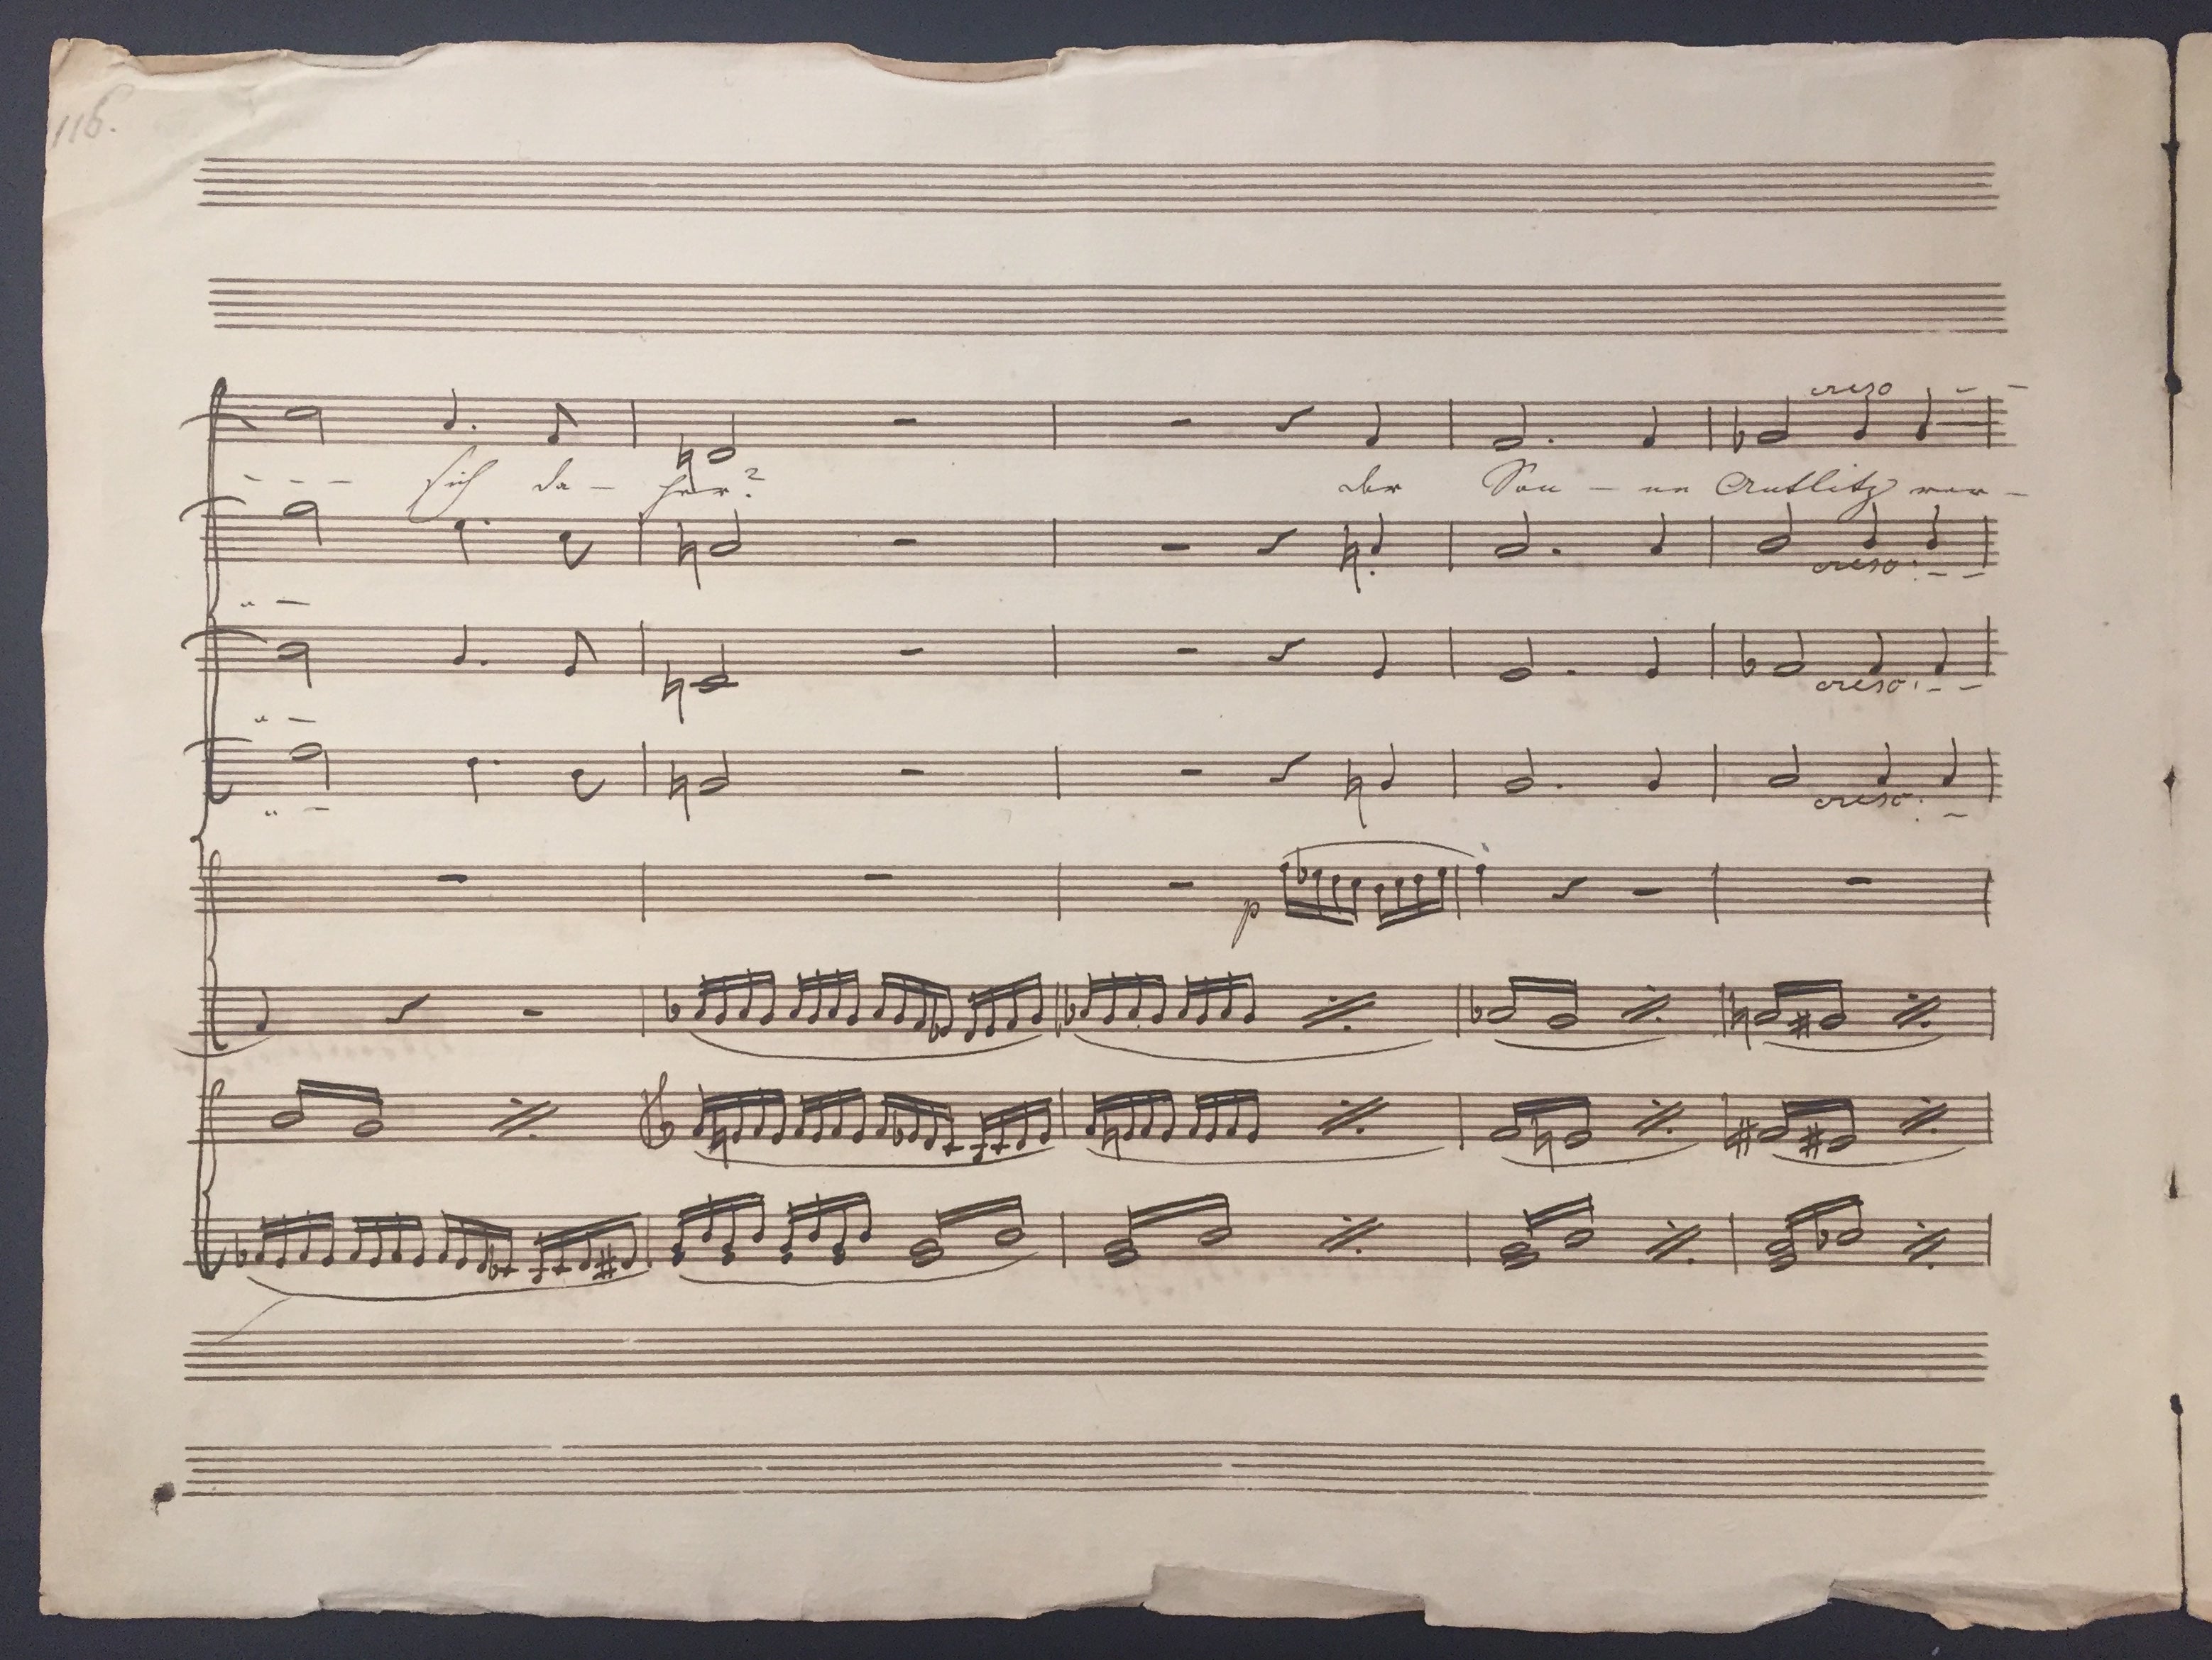 116.
cresc - -
- - - sich da - her? der Son - ne Antlitz ver -
cresc: - -
cresc: - -
cresc: -
p